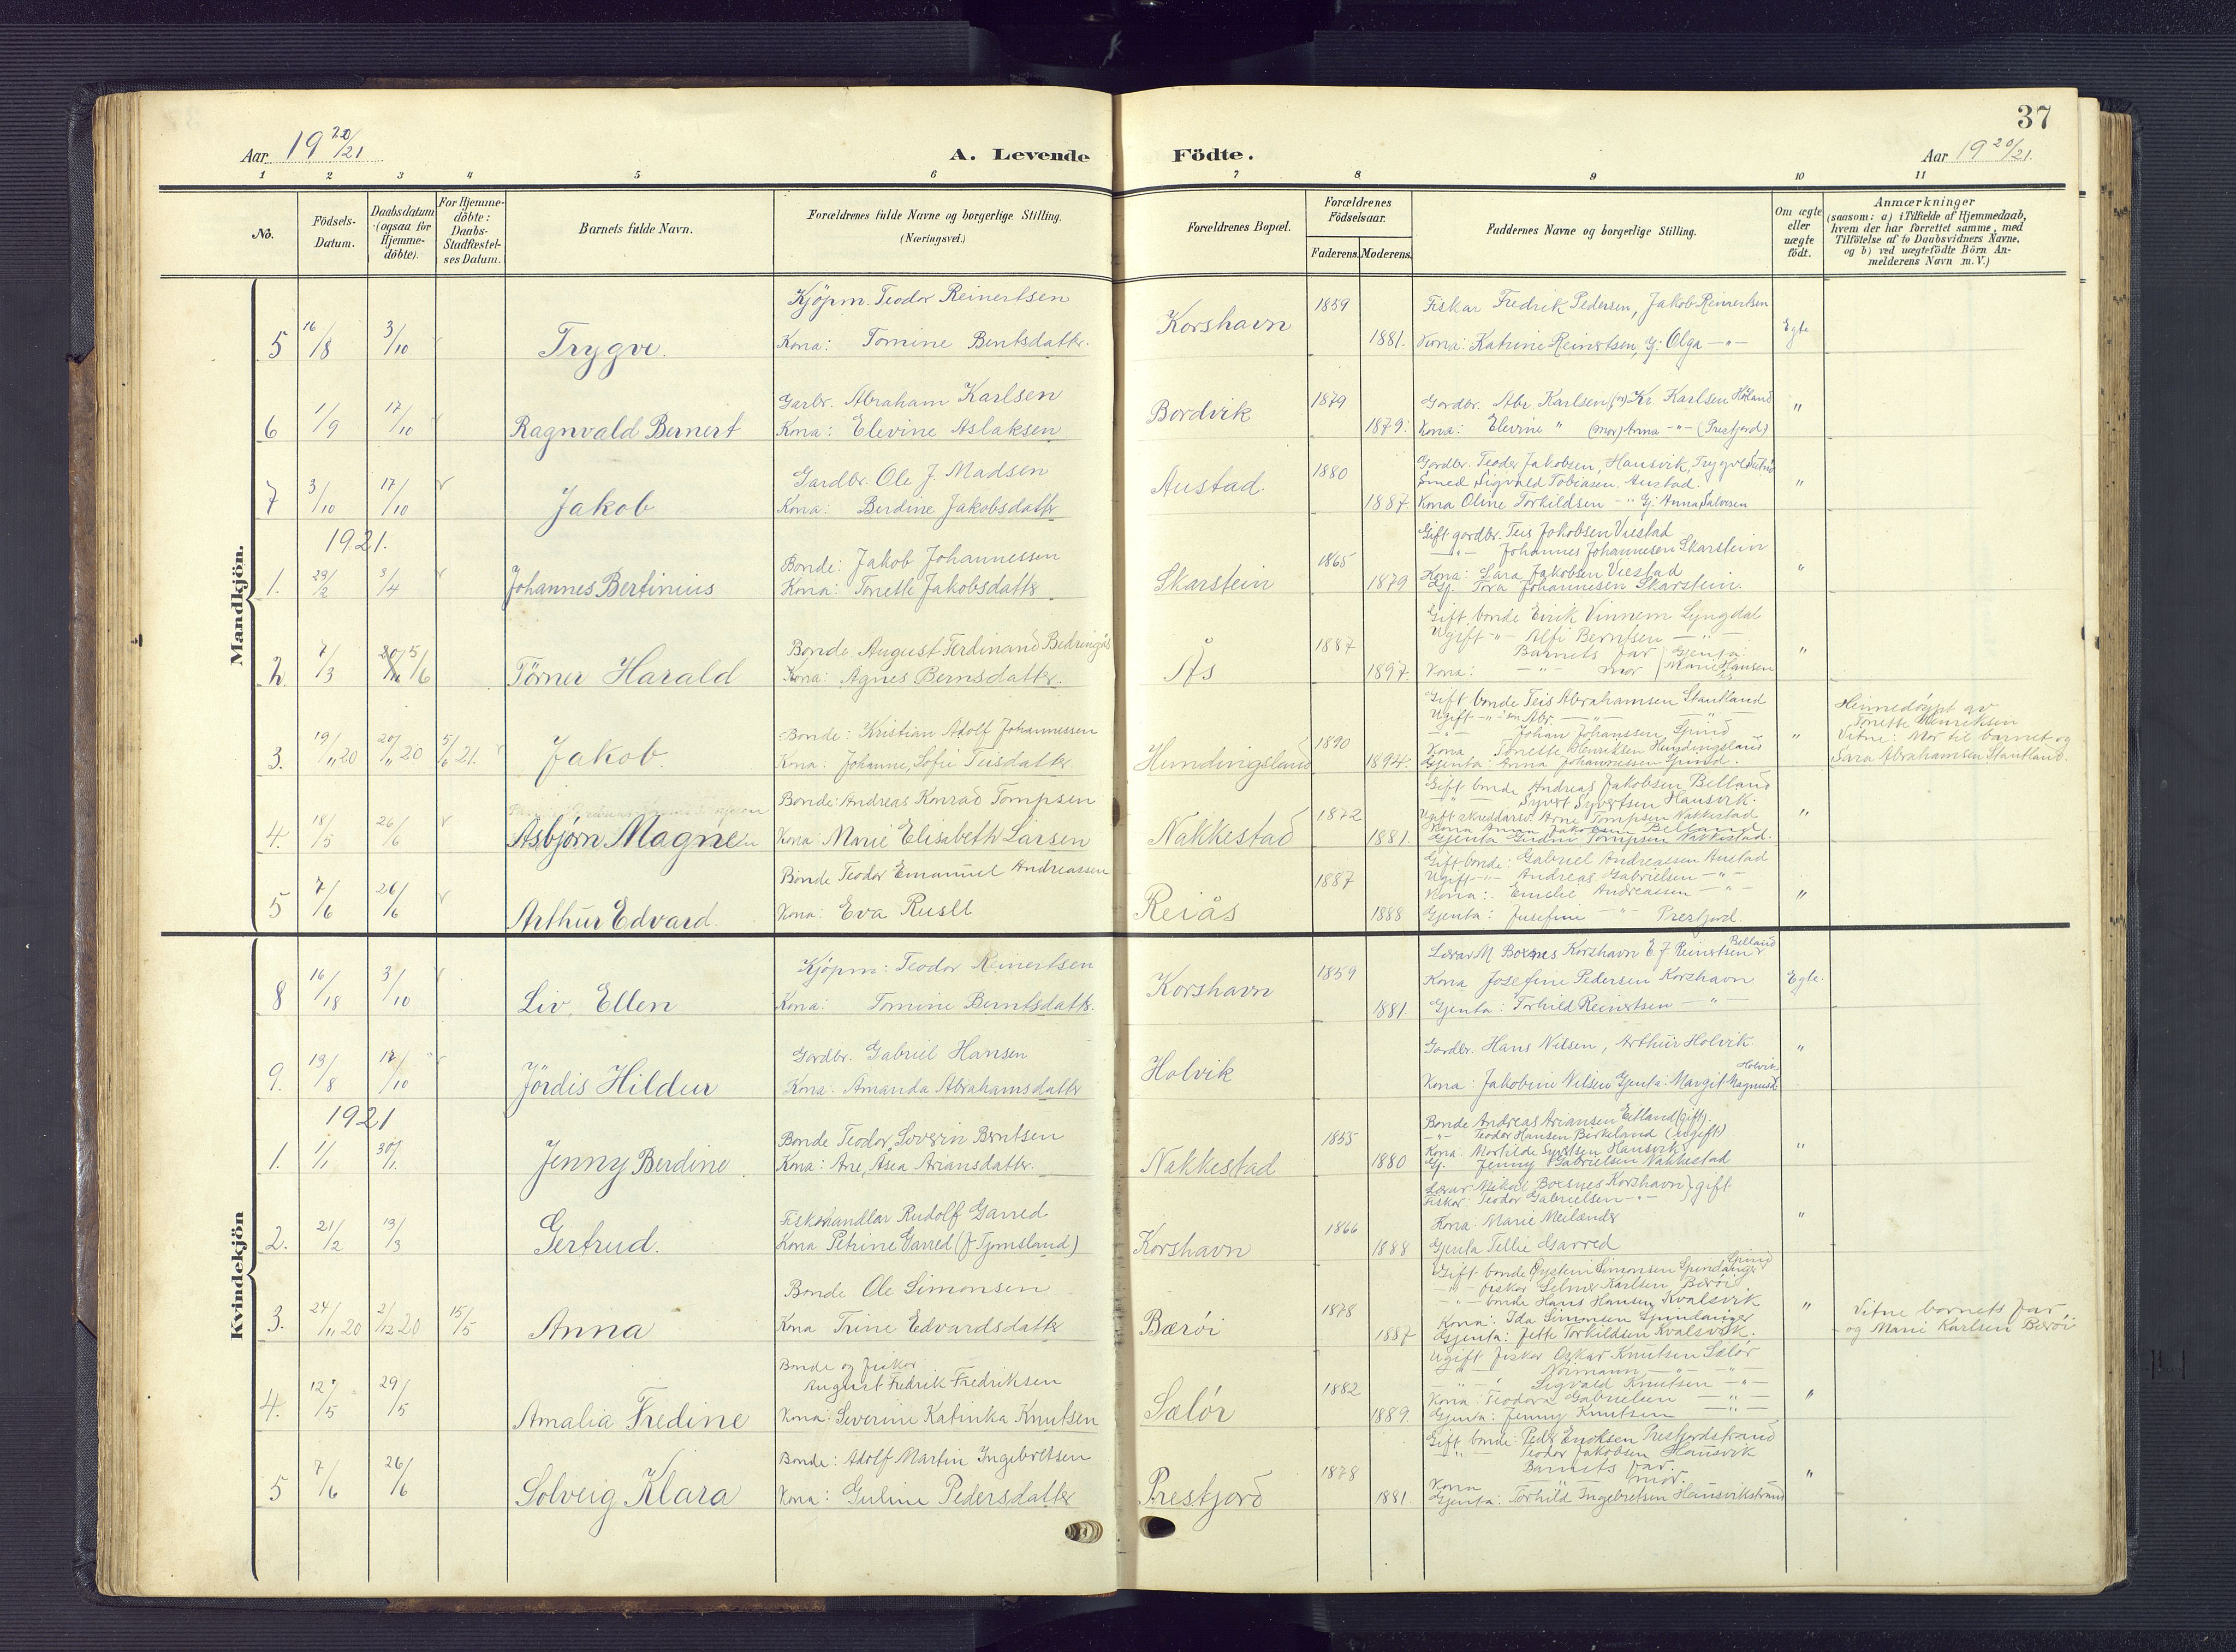 37
Aar 19 20/21
A. Levende Födte.
Aar 19 20/21.
1 2 3 4 5 6 7 8 9 10 11
No.
Födsels-Datum.
Daabsdatum (ogsaa for Hjemme-döbte).
For Hjemme-döbte: Daabs-Stadfæstel-ses Datum.
Barnets fulde Navn.
Forældrenes fulde Navne og borgerlige Stilling.
(Næringsvei.)
Forældrenes Bopæl.
Forældrenes Födselsaar.
Faderens. Moderens.
Faddernes Navne og borgerlige Stilling.
Om ægte eller uægte födt.
Anmærkninger
(saasom: a) i Tilfælde af Hjemmedaab,
hvem der har forrettet samme, med
Tilföielse af to Daabsvidners Navne,
og b) ved uægtefödte Börn An-
melderens Navn m. V.)
Mandkjön.
Kjöpm. Teodor Reinertsen
5 16/8 3/10 Trygve. Kona: Tomine Bentsdattr.
Korshavn 1859 1881.
Fiskar Fredrik Pedersen, Jakob Reinertsen
Kona: Katrine Reinertsen, Gj: Olga -"- Egte
Garbr. Abraham Karlsen
6 1/9 17/10 Ragnvald Bernert Kona: Elevine Aslaksen
Bordvik 1879 1879.
Gardbr. Abr. Karlsen, Kr. Karlsen
Kona: Elevine " (mor) Anna -"- (Prestfjord) "
Gardbr. Ole J. Madsen
7 3/10 17/10 Jakob Kona: Berdine Jakobsdattr
Austad. 1880 1887.
Gardbr. Teodor Jakobsen, Hausvik, Trygve
Smed Sigvald Tobiasen, Austad. "
Kona Oline Torkildsen -"- Gj. Anna Salvesen
1921.
Bonde: Jakob Johannessen
1. 29/2 3/4 Johannes Bertinius Kona: Tonette Jakobsdattr
Skarstein 1865 1879
Gift gardbr. Teis Jakobsen Viestad
-"- Johannes Johannesen Skarstein
Kona: Sara Jakobsen Viestad "
Gj. Tora Johannesen Skarstein.
Bonde August Ferdinand
2. 7/3 5/6 Törner Harald Kona: Agnes Bernsdattr.
Ås 1887 1897.
Gift bonde Eirik Vinnem Lyngdal
Ugift -"- Alfi Berntsen -"-
Barnets far Gjenta: "
Kona: -"- mor Marie Hansen
Bonde: Kristian Adolf Johannessen
3. 19/11 20 20/11 20 5/6 21. Jakob. Kona: Johanne, Sofie Teisdattr
Hundingsland 1890 1894.
Gift bonde Teis Abrahamsen Stautland
Ugift -"- Abr. -"- -"-
-"- Johan Johanssen Spind
Kona Tonette Henriksen Hundingsland "
Gjenta: Anna Johannessen Spind.
Heimedöypt av
Tonette Henriksen
Vitne: Mor til barnet og
Sara Abrahamsen Stautland.
Bonde: Andreas Konrad Tompsen
4. 18/5 26/6 Asbjørn Magne Kona: Marie Elisabeth Larsen
Nakkestad 1872 1881.
Gift bonde Andreas Jakobsen Belland
-"- Syvert Syvertsen Hausvik.
Ugift skreddarsv. Arne Tompsen Nakkestad "
Kona Jakobsen Belland
Gjenta Gudni Tompsen Nakkestad.
Bonde Teodor Emanuel Andreassen
5 7/6 26/6 Arthur Edvard. Kona: Eva
Reiås 1887 1888
Gift bonde: Gabriel Andreassen Austad
Ugift -"- Andreas Gabrielsen -"-
Kona: Emelie Andreassen -"- "
Gjenta: Jusefine -"- Prestfjord.
Kvindekjön
Kjöpm: Teodor Reinertsen
8 16/18 3/10 Liv, Ellen Kona: Tomine Berntsdattr.
Korshavn 1859 1881.
Lærar M. Boxnes Korshavn E. J. Reinertsen Belland
Kona Josefine Pedersen Korshavn Egte.
Gjenta: Torhild Reinertsen -"-
Gardbr. Gabriel Hansen
9. 19/8 17/10 Jördis Hildur Kona: Amanda Abrahamsdattr
Holvik
Gardbr. Hans Nilsen, Arthur Holvik. "
Kona: Jakobine Nilsen Gjenta: Margit Holvik
1921
Bonde Teodor, Severin Berntsen
1. 1/1 30/1. Jenny Berdine. Kona: Ane, Åsea Ariansdattr.
Nakkestad 1855 1880
Bonde Andreas Ariansen Eitland (gift).
-"- Teodor Hansen Birkeland (ugift)
Kona: Mortilde Syvrtsen Hausvik "
Gj. Jenny Gabrielsen Nakkestad
Fiskehandlar Rudolf Garred
2. 21/2 13/3 Gertrud. Kona Petrine Garred (f. Tjomsland)
Korshavn 1866 1888
Lærar Mikal Boxnes Korshavn } gift
Fiskar: Teodor Gabrielsen -"-
Kona: Marie Meilænder "
Gjenta Tellie Garred
Bonde Ole Simonsen
3. 24/11 20 2/12 20 15/5 Anna Kona Trine Edvardsdattr
Bærøi 1878 1887
Gift bonde Øystein Simonsen Spind
-"- fiskar Selmer Karlsen Bærøi
-"- bonde Hans Hansen Kvalsvik "
Kona: Ida Simonsen
Gjenta: Jette Torkildsen Kvalsvik.
Vitne barnets far
og Marie Karlsen Bærøi
Bonde og fiskar
August Fredrik Fredriksen
4. 12/5 29/5 Amalia Fredine Kona: Severine Katinka Knutsen
Sælør 1882 1889
Ugift fiskar Oskar Knutsen Sælør
-"- Normann -"- -"-
-"- Sigvald Knutsen -"-
Kona: Teodora Gabrielsen -"- "
Gjenta: Jenny Knutsen -"-
Bonde: Adolf Martin Ingebretsen
5 7/6 26/6 Solveig Klara Kona: Guline Pedersdattr
Prestfjord 1878 1881.
Gift bonde: Peder Enoksen Prestfjordstrand
-"- Teodor Jakobsen Hausvik
Barnets far.
Kona -"- mor. "
Gjenta: Torhild Ingebretsen Hausvikstrand